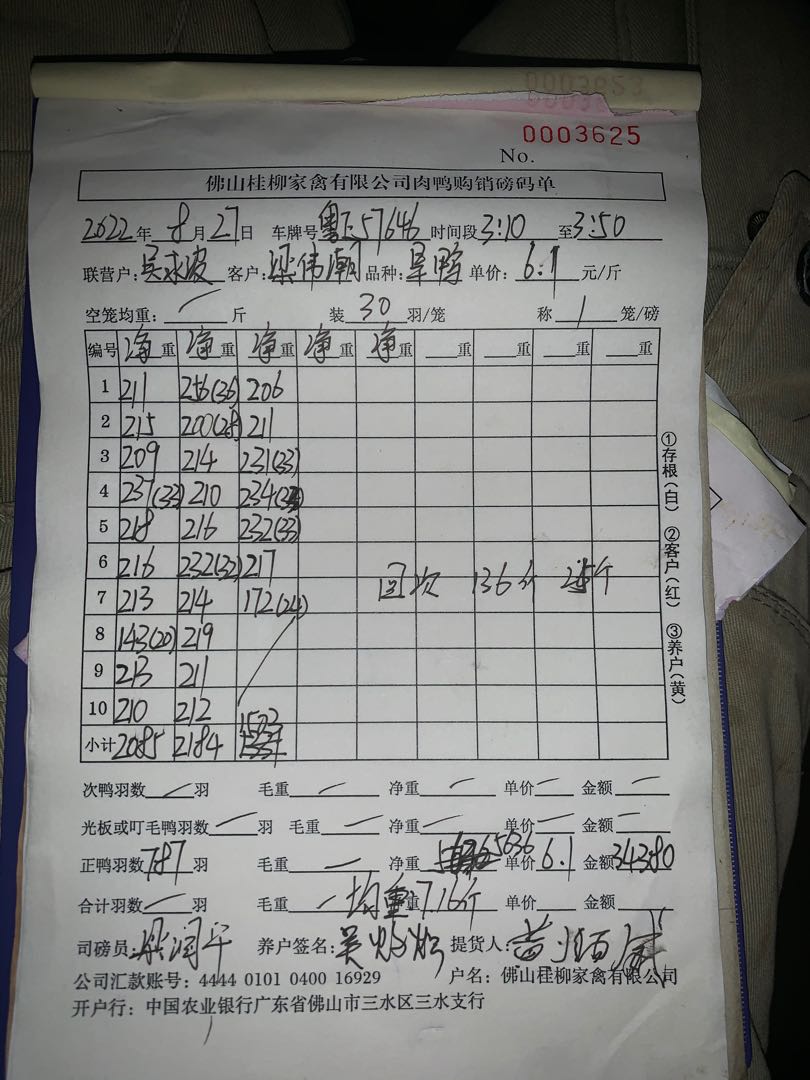 0003623
0003625
No.
佛山桂柳家禽有限公司肉鸭购销磅码单
2022年 8月27日 车牌号粤E57646 时间段3:10 至3:50
联营户: 吴求波 客户: 梁伟潮 品种: 旱鸭 单价: 6.1 元/斤
空笼均重: 斤 装 30 羽/笼 称 1 笼/磅
编号 净重 净重 净重 净重 净重 重 重 重 重
1 211 256(36) 206
2 215 200(28) 211
3 209 214 231(33)
4 237(33) 210 234(33)
5 218 216 232(33)
6 216 232(32) 217
回次 136斤 25斤
7 213 214 172(24)
8 143(20) 219
9 213 211
10 210 212
小计 2085 2184 1503
①存根(白) ②客户(红) ③养户(黄)
次鸭羽数 羽 毛重 净重 单价 金额
光板或叮毛鸭羽数 羽 毛重 净重 单价 金额
正鸭羽数 787 羽 毛重 净重 5636 单价 6.1 金额 34380
合计羽数 羽 毛重 均重7.16斤 单价 金额
司磅员: 梁润平 养户签名: 吴 提货人: 黄
公司汇款账号: 4444 0101 0400 16929 户名: 佛山桂柳家禽有限公司
开户行: 中国农业银行广东省佛山市三水区三水支行